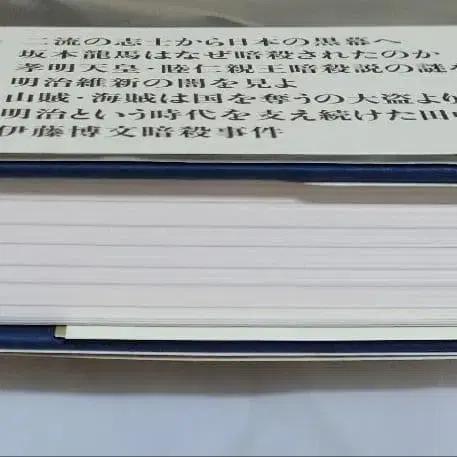 二流の志士から日本の黒幕へ
坂本龍馬はなぜ暗殺されたのか
孝明天皇・睦仁親王暗殺説の謎
明治維新の闇を見よ
山賊・海賊は国を奪うの大盗より
明治という時代を支え続けた田
伊藤博文暗殺事件